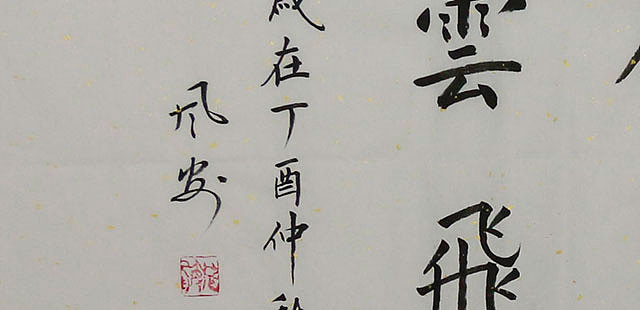 雲飛
歲在丁酉仲秋
风安